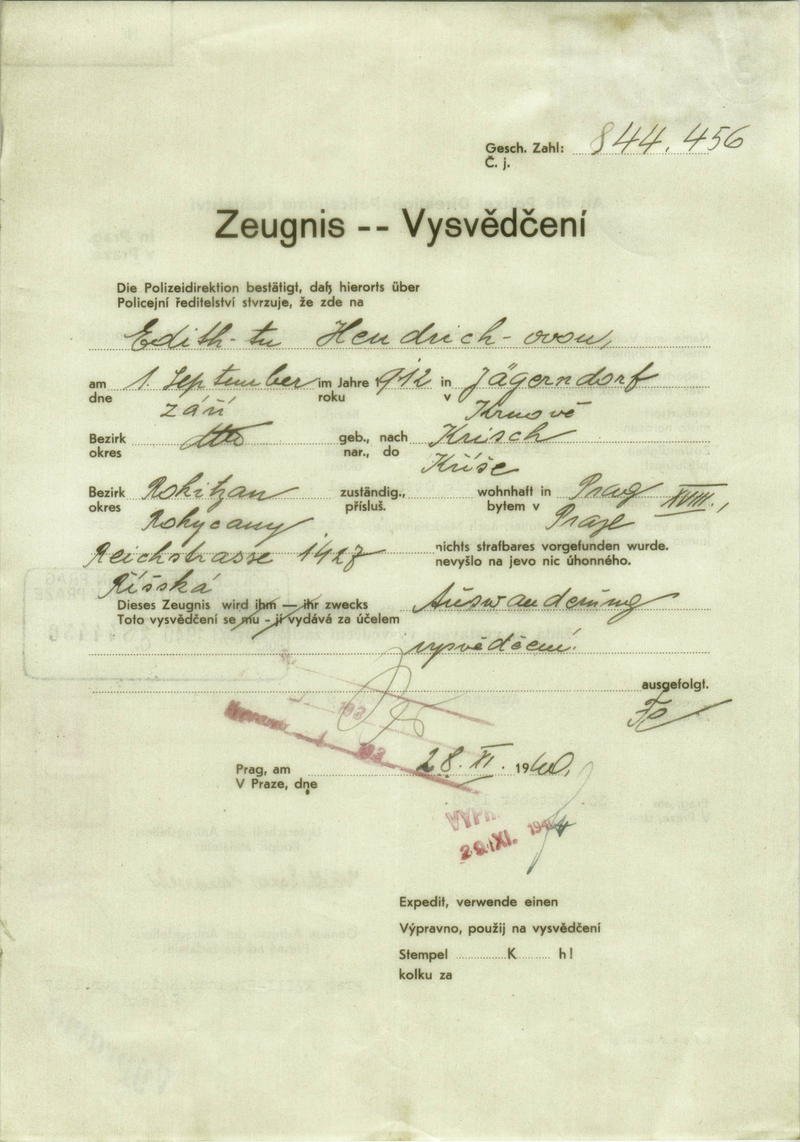 Gesch. Zahl: 844.456
Č. j.
Zeugnis -- Vysvědčení
Die Polizeidirektion bestätigt, daß hierorts über
Policejní ředitelství stvrzuje, že zde na
Edith-tu Hendrich-ovou,
am 1. September im Jahre 1912 in Jägerndorf
dne září roku v Krnově
Bezirk dtto geb., nach Krisch
okres nar., do Kříše
Bezirk Rokitzan zuständig., wohnhaft in Prag XVIII.,
okres Rokycany přísluš. bytem v Praze
Reichstrasse 1427 nichts strafbares vorgefunden wurde.
Říšská nevyšlo na jevo nic úhonného.
Dieses Zeugnis wird ihm — ihr zwecks Auswanderung
Toto vysvědčení se mu - jí vydává za účelem
vysvědčení.
ausgefolgt.
Prag, am 28. XI. 1940.
V Praze, dne
29. XI. 194
Expedit, verwende einen
Výpravno, použij na vysvědčení
Stempel K h!
kolku za